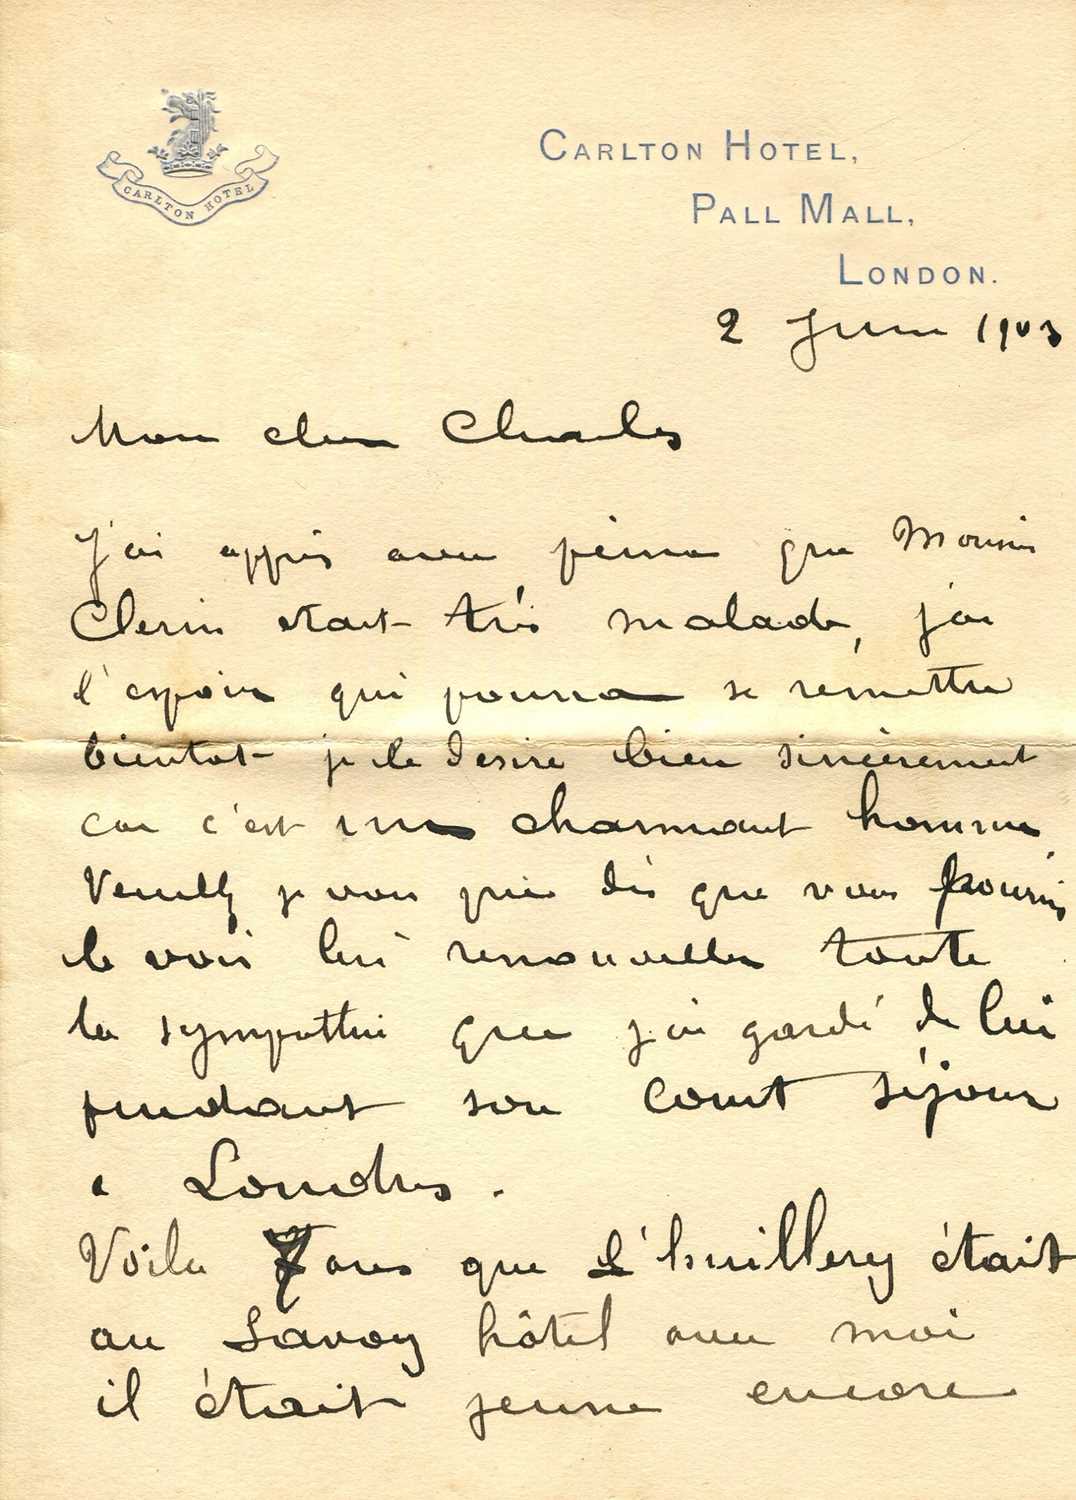 CARLTON HOTEL
CARLTON HOTEL,
PALL MALL,
LONDON.
2 Juin 1903
Mon cher Charles
J'ai appris avec peine que Monsieur
Clerin etait très malade, j'ai
l'espoir qui pourra se remettre
bientot je le desire bien sincèrement
car c'est un charmant homme
Veuillez je vous prie dès que vous pourrez
le voir lui renouveller toute
la sympathie que j'ai gardé de lui
pendant son court séjour
a Londres.
Voila 7 ans que l'huillery était
au Savoy hôtel avec moi
il était jeune encore